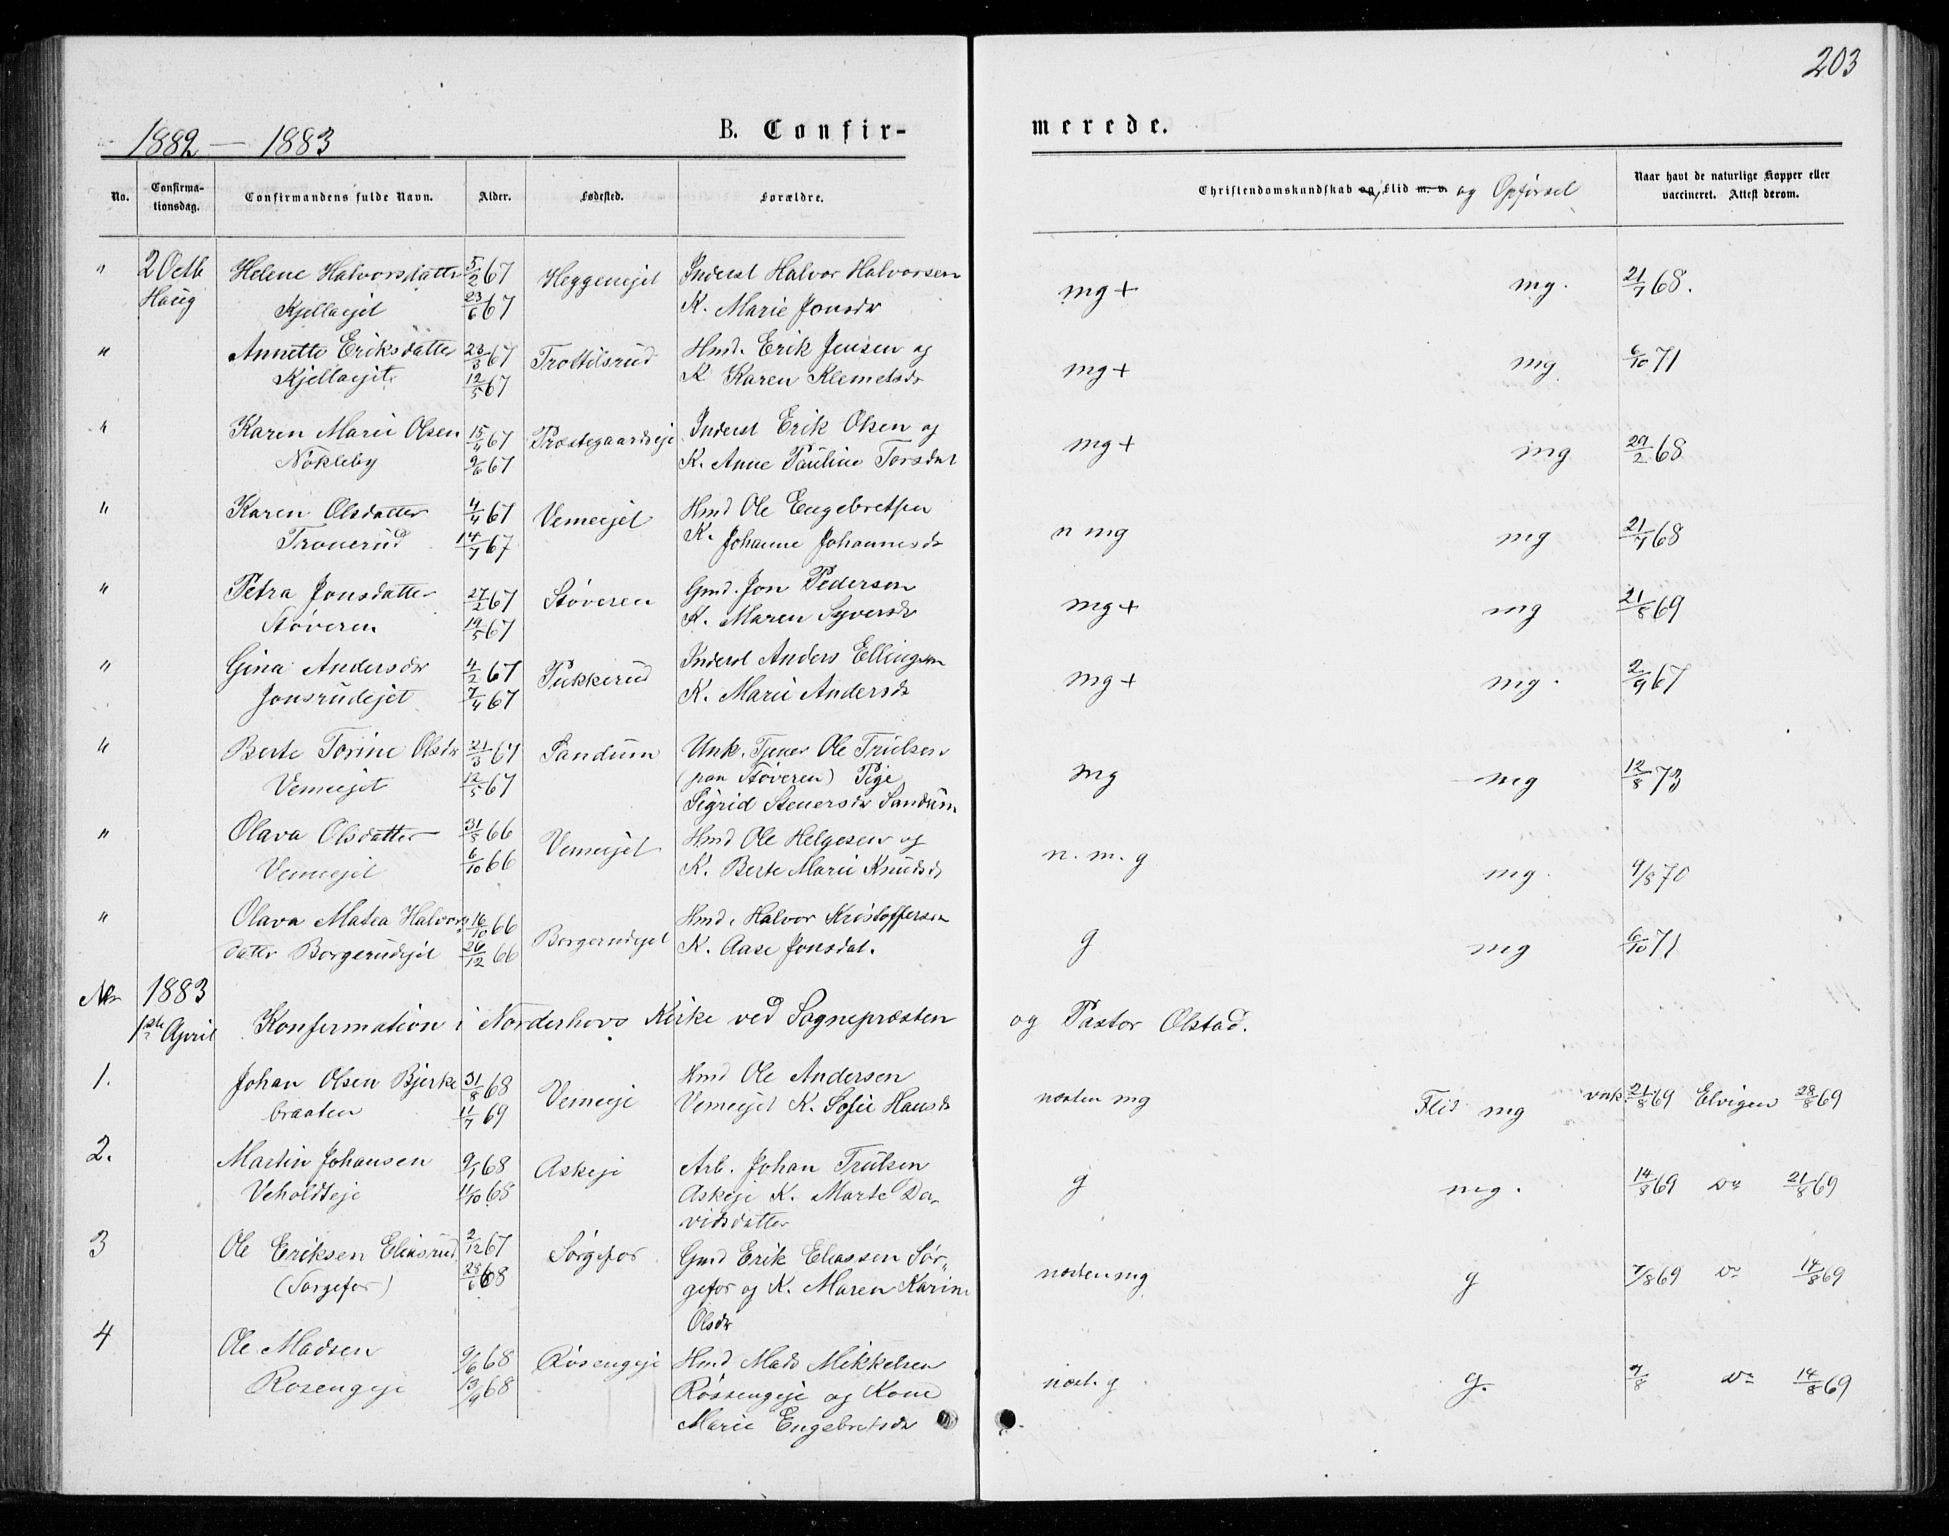 203
1882 — 1883
B. Confir-
merede.
No.
Confirma-
tionsdag.
Confirmandens fulde Navn.
Alder.
Fødested.
Forældre.
Christendomskundskab og, Flid m. v. og Opførsel
Naar havt de naturlige Kopper eller
vaccineret. Attest derom.
" 2 Octb Helene Halvorsdatter 5/2 67 Heggeneiet Inderst Halvor Halvorsen mg+ mg. 21/7 68.
Haug Kjellaejet 23/6 67 K. Marie Jonsdr
" Annette Eriksdatter 23/3 67 Trottilsrud Hmd. Erik Jensen og mg+ mg 6/10 71
Kjellaejet 12/5 67 K Karen Klemetsdr
" Karen Marie Olsen 15/4 67 Præstegaardseje Inderst Erik Olsen og mg+ mg 29/2 68
Nökleby 9/6 67 K. Anne Pauline Torsdat
" Karen Olsdatter 4/4 67 Vemeejet Hmd Ole Engebretsen n mg mg 21/7 68
Tronerud 14/7 67 K. Johanne Johannesdr
" Petra Jonsdatter 27/2 67 Støveren Gmd. Jon Pedersen mg+ mg 21/8 69
Støveren 19/5 67 K. Maren Syversdr
" Gina Andersdr 4/2 67 Pukkerud Inderst Anders Ellingsen mg+ mg. 2/9 67
Jonsrudejet 7/4 67 K. Marie Andersdr
" Berte Torine Olsdr 21/3 67 Sandum Unk. Tjener Ole Trulsen mg mg 12/8 73
Vemeejet 12/5 67 (paa Støveren) Pige
Sigrid Stenersdr Sandum
" Olava Olsdatter 31/8 66 Vemeejet Hmd Ole Helgesen og n. m. g mg. 9/8 70
Vemeejet 6/10 66 K. Berte Marie Knudsdr
" Olava Matea Halvors 16/10 66 Borgerudejet Hmd. Halvor Kristoffersen g mg 6/10 71
datter Borgerudejet 26/12 66 K. Aase Jonsdat.
No 1883
1ste April Konfirmation i Norderhovs Kirke ved Sognepræsten og Pastor Olstad.
1. Johan Olsen Bjerke 31/8 68 Vemeeje Hmd Ole Andersen næsten mg Flid mg vak. 21/8 69 Elvigen 28/8 69
braaten 11/7 69 Vemeejet K. Sofie Hansdr
2. Martin Johansen 9/1 68 Askeje Arb. Johan Trulsen g mg. 14/8 69 Do 21/8 69
Veholdteje 11/10 68 Askeje K. Marte Da-
vidsdatter
3 Ole Eriksen Eliasrud 2/12 67 Sørgefor Gmd Erik Eliassen Sør- næsten mg g 7/8 69 Do 14/8 69
(Sørgefor) 28/6 68 gefor og K. Maren Karine
Olsdr
4 Ole Madsen 9/6 68 Røsengeje Hmd Mads Mikkelsen næst. g g. 7/8 Do 14/8 69
Rosengeje 13/9 68 Røssengeje og Kone
Marie Engebretsdr